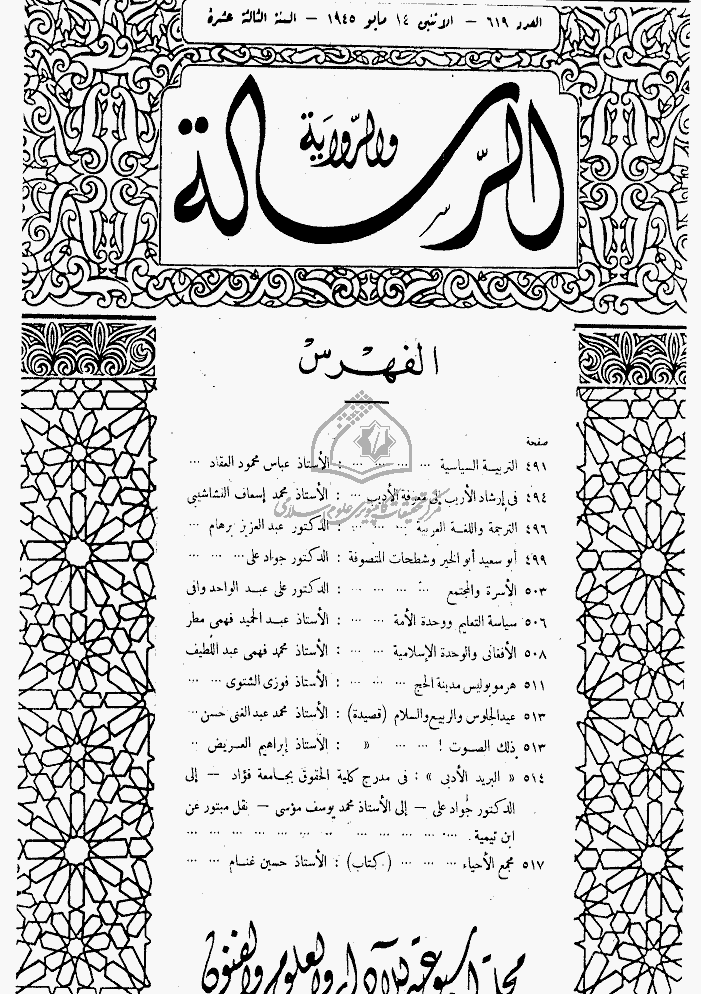 العدد ٦١٩ – الاثنين ١٤ مايو ١٩٤٥ – السنة الثالثة عشرة
الرسالة
والرواية
الفهرس
صفحة
٤٩١ التربية السياسية ... ... ... ... : الأستاذ عباس محمود العقاد ...
٤٩٤ فى إرشاد الأريب إلى معرفة الأديب ... : الأستاذ محمد إسعاف النشاشيبى
٤٩٦ الترجمة واللغة العربية ... ... ... : الدكتور عبد العزيز برهام ...
٤٩٩ أبو سعيد أبو الخير وشطحات المتصوفة : الدكتور جواد على ... ... ...
٥٠٣ الأسرة والمجتمع ... ... ... ... : الدكتور على عبد الواحد وافى
٥٠٦ سياسة التعليم ووحدة الأمة ... ... : الأستاذ عبد الحميد فهمى مطر
٥٠٨ الأفغانى والوحدة الإسلامية ... ... : الأستاذ محمد فهمى عبد اللطيف
٥١١ هرموبوليس مدينة الحج ... ... ... : الأستاذ فوزى الشتوى ... ...
٥١٣ عيد الجلوس والربيع والسلام (قصيدة) : الأستاذ محمد عبد الغنى حسن ...
٥١٣ ذلك الصوت ! ... ... « : الأستاذ إبراهيم العريض ...
٥١٤ « البريد الأدبى » : فى مدرج كلية الحقوق بجامعة فؤاد – إلى
الدكتور جواد على – إلى الأستاذ محمد يوسف موسى – نقل مبتور عن
ابن تيمية . ... ... ... ... ... ... ... ... ... ...
٥١٧ مجمع الأحياء ... ... ... (كتاب) : الأستاذ حسين غنام ... ...
مجلة أسبوعية للآداب والعلوم والفنون
مركز تحقيقات كامپيوترى علوم اسلامى